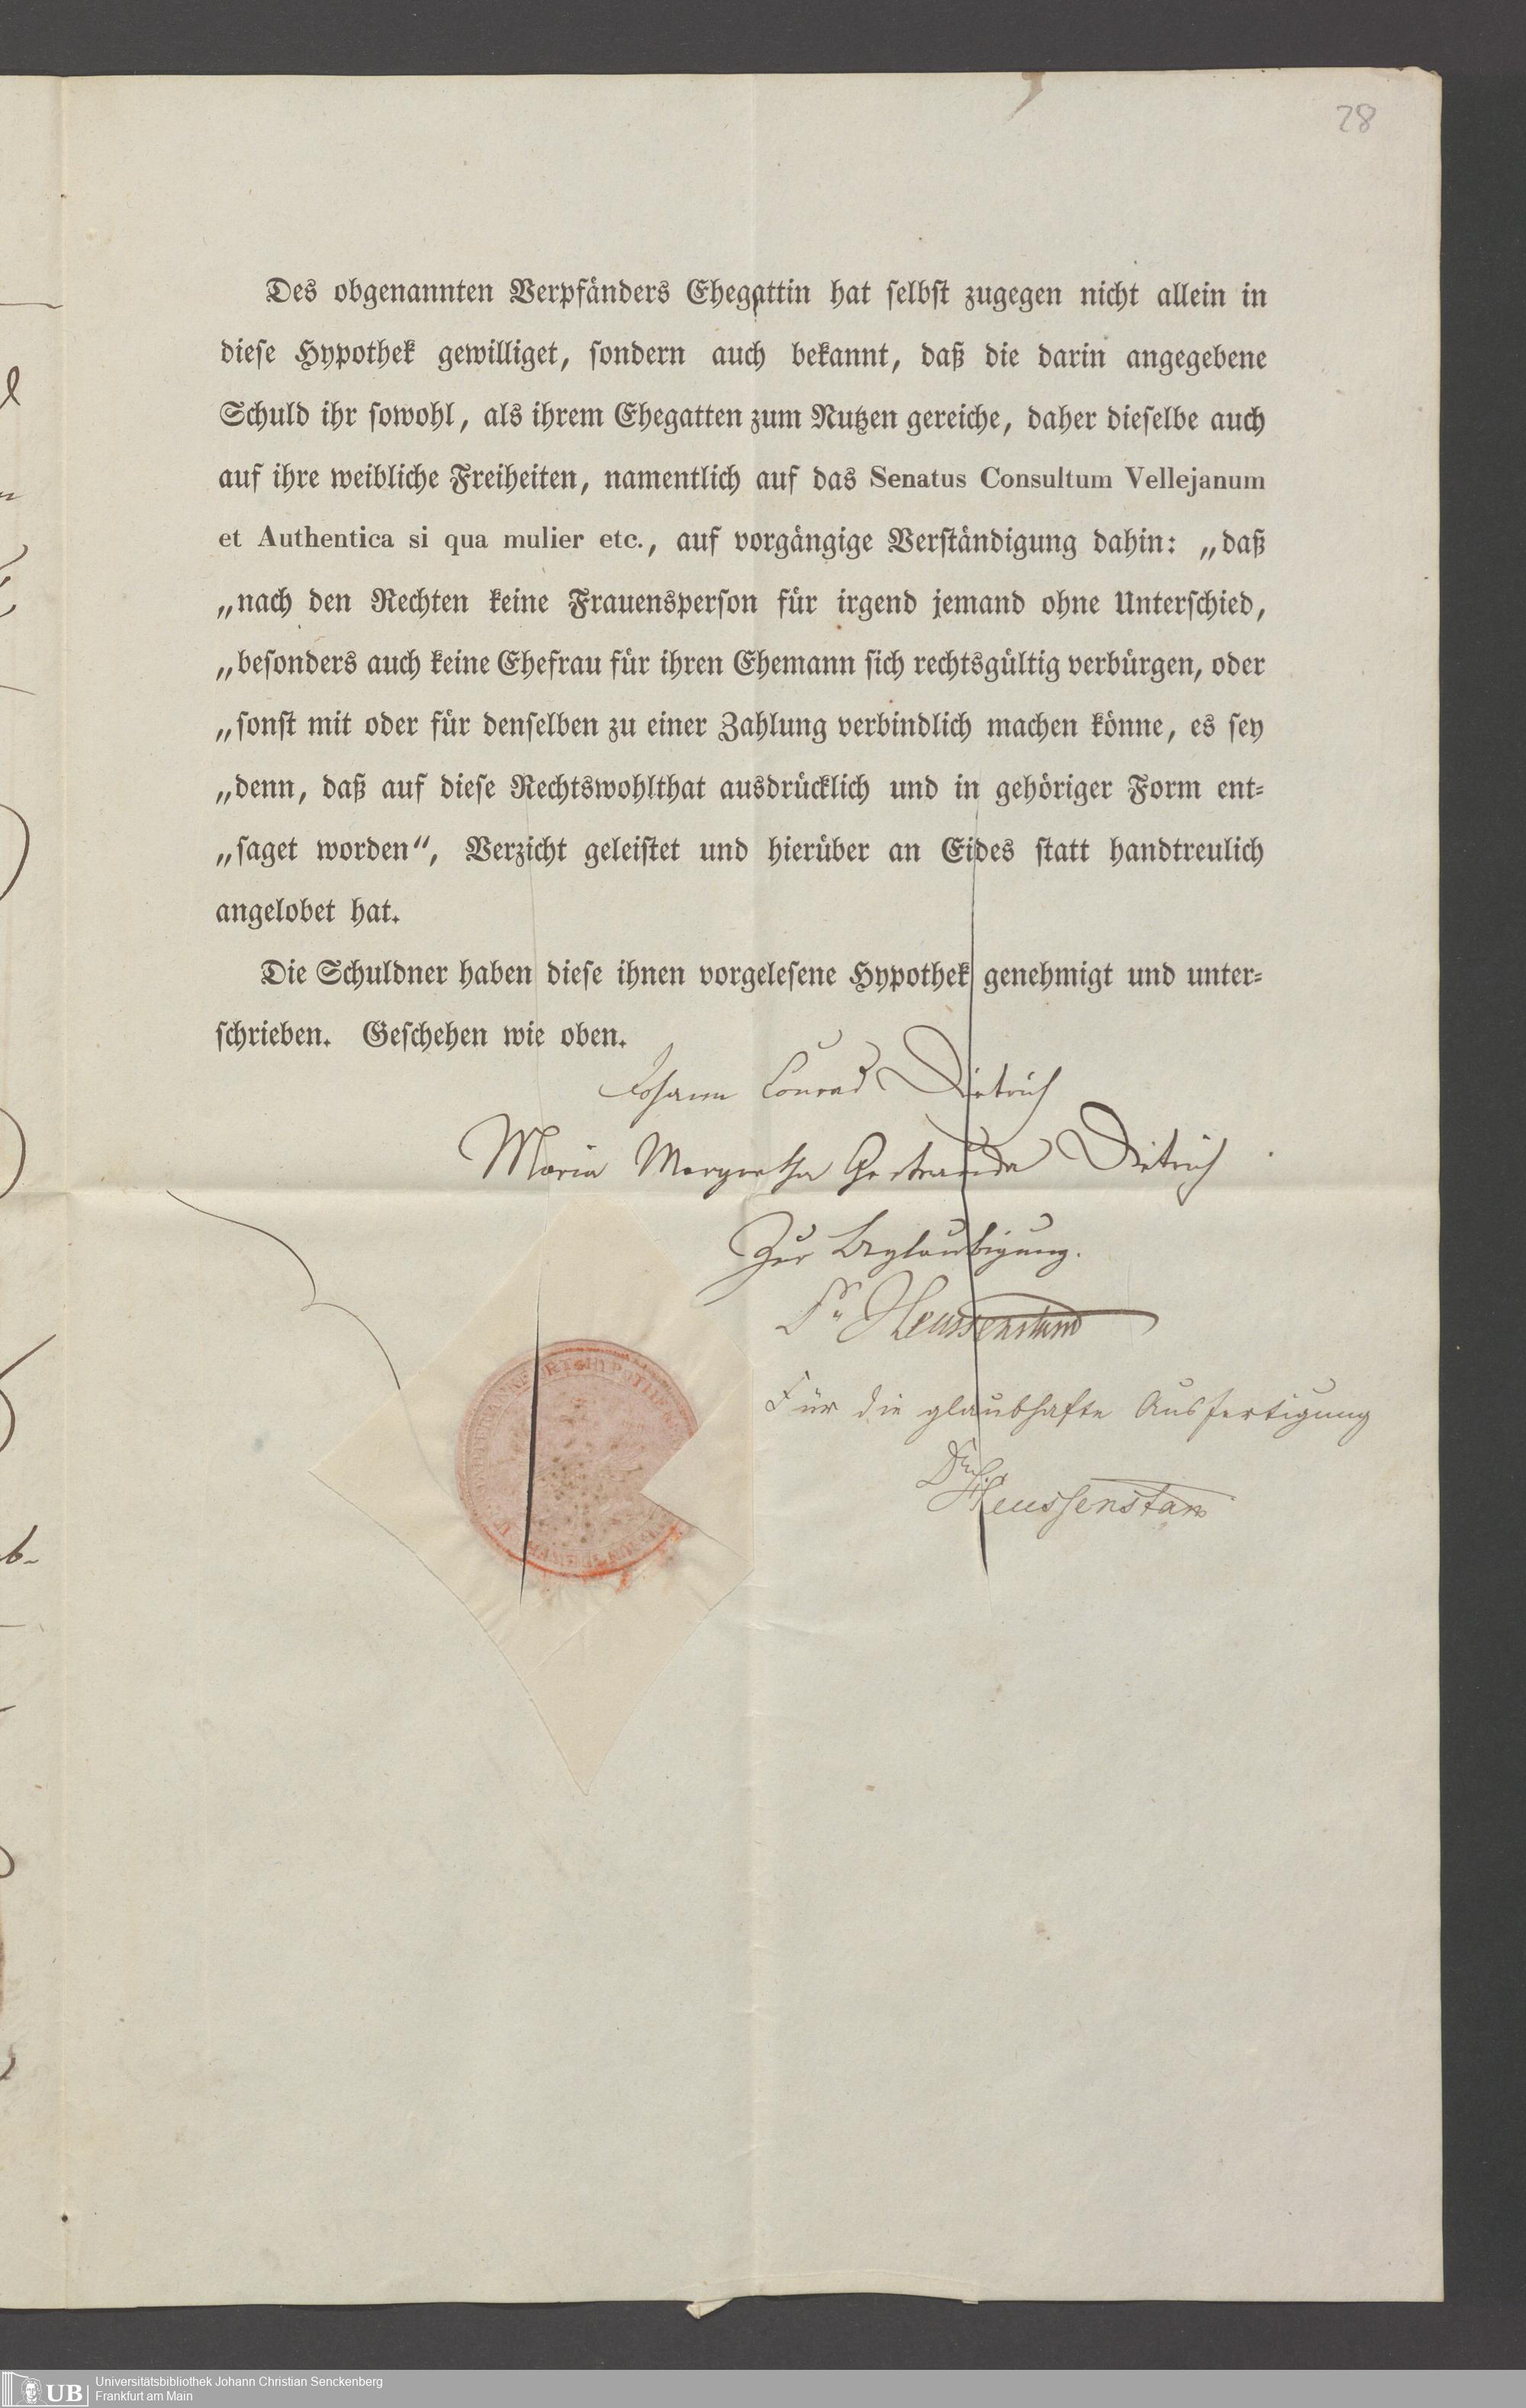 28
Des obgenannten Verpfänders Ehegattin hat selbst zugegen nicht allein in
diese Hypothek gewilliget, sondern auch bekannt, daß die darin angegebene
Schuld ihr sowohl, als ihrem Ehegatten zum Nutzen gereiche, daher dieselbe auch
auf ihre weibliche Freiheiten, namentlich auf das Senatus Consultum Vellejanum
et Authentica si qua mulier etc., auf vorgängige Verständigung dahin: „daß
„nach den Rechten keine Frauensperson für irgend jemand ohne Unterschied,
„besonders auch keine Ehefrau für ihren Ehemann sich rechtsgültig verbürgen, oder
„sonst mit oder für denselben zu einer Zahlung verbindlich machen könne, es sey
„denn, daß auf diese Rechtswohlthat ausdrücklich und in gehöriger Form ent-
„saget worden“, Verzicht geleistet und hierüber an Eides statt handtreulich
angelobet hat.
Die Schuldner haben diese ihnen vorgelesene Hypothek genehmigt und unter-
schrieben. Geschehen wie oben.
Johann Conrad Dietrich
Maria Margretha Gertrauda Dietrich
Zur Beglaubigung.
Dr. Heussenstam
Für die glaubhafte Ausfertigung
Heussenstam
UB
Universitätsbibliothek Johann Christian Senckenberg
Frankfurt am Main